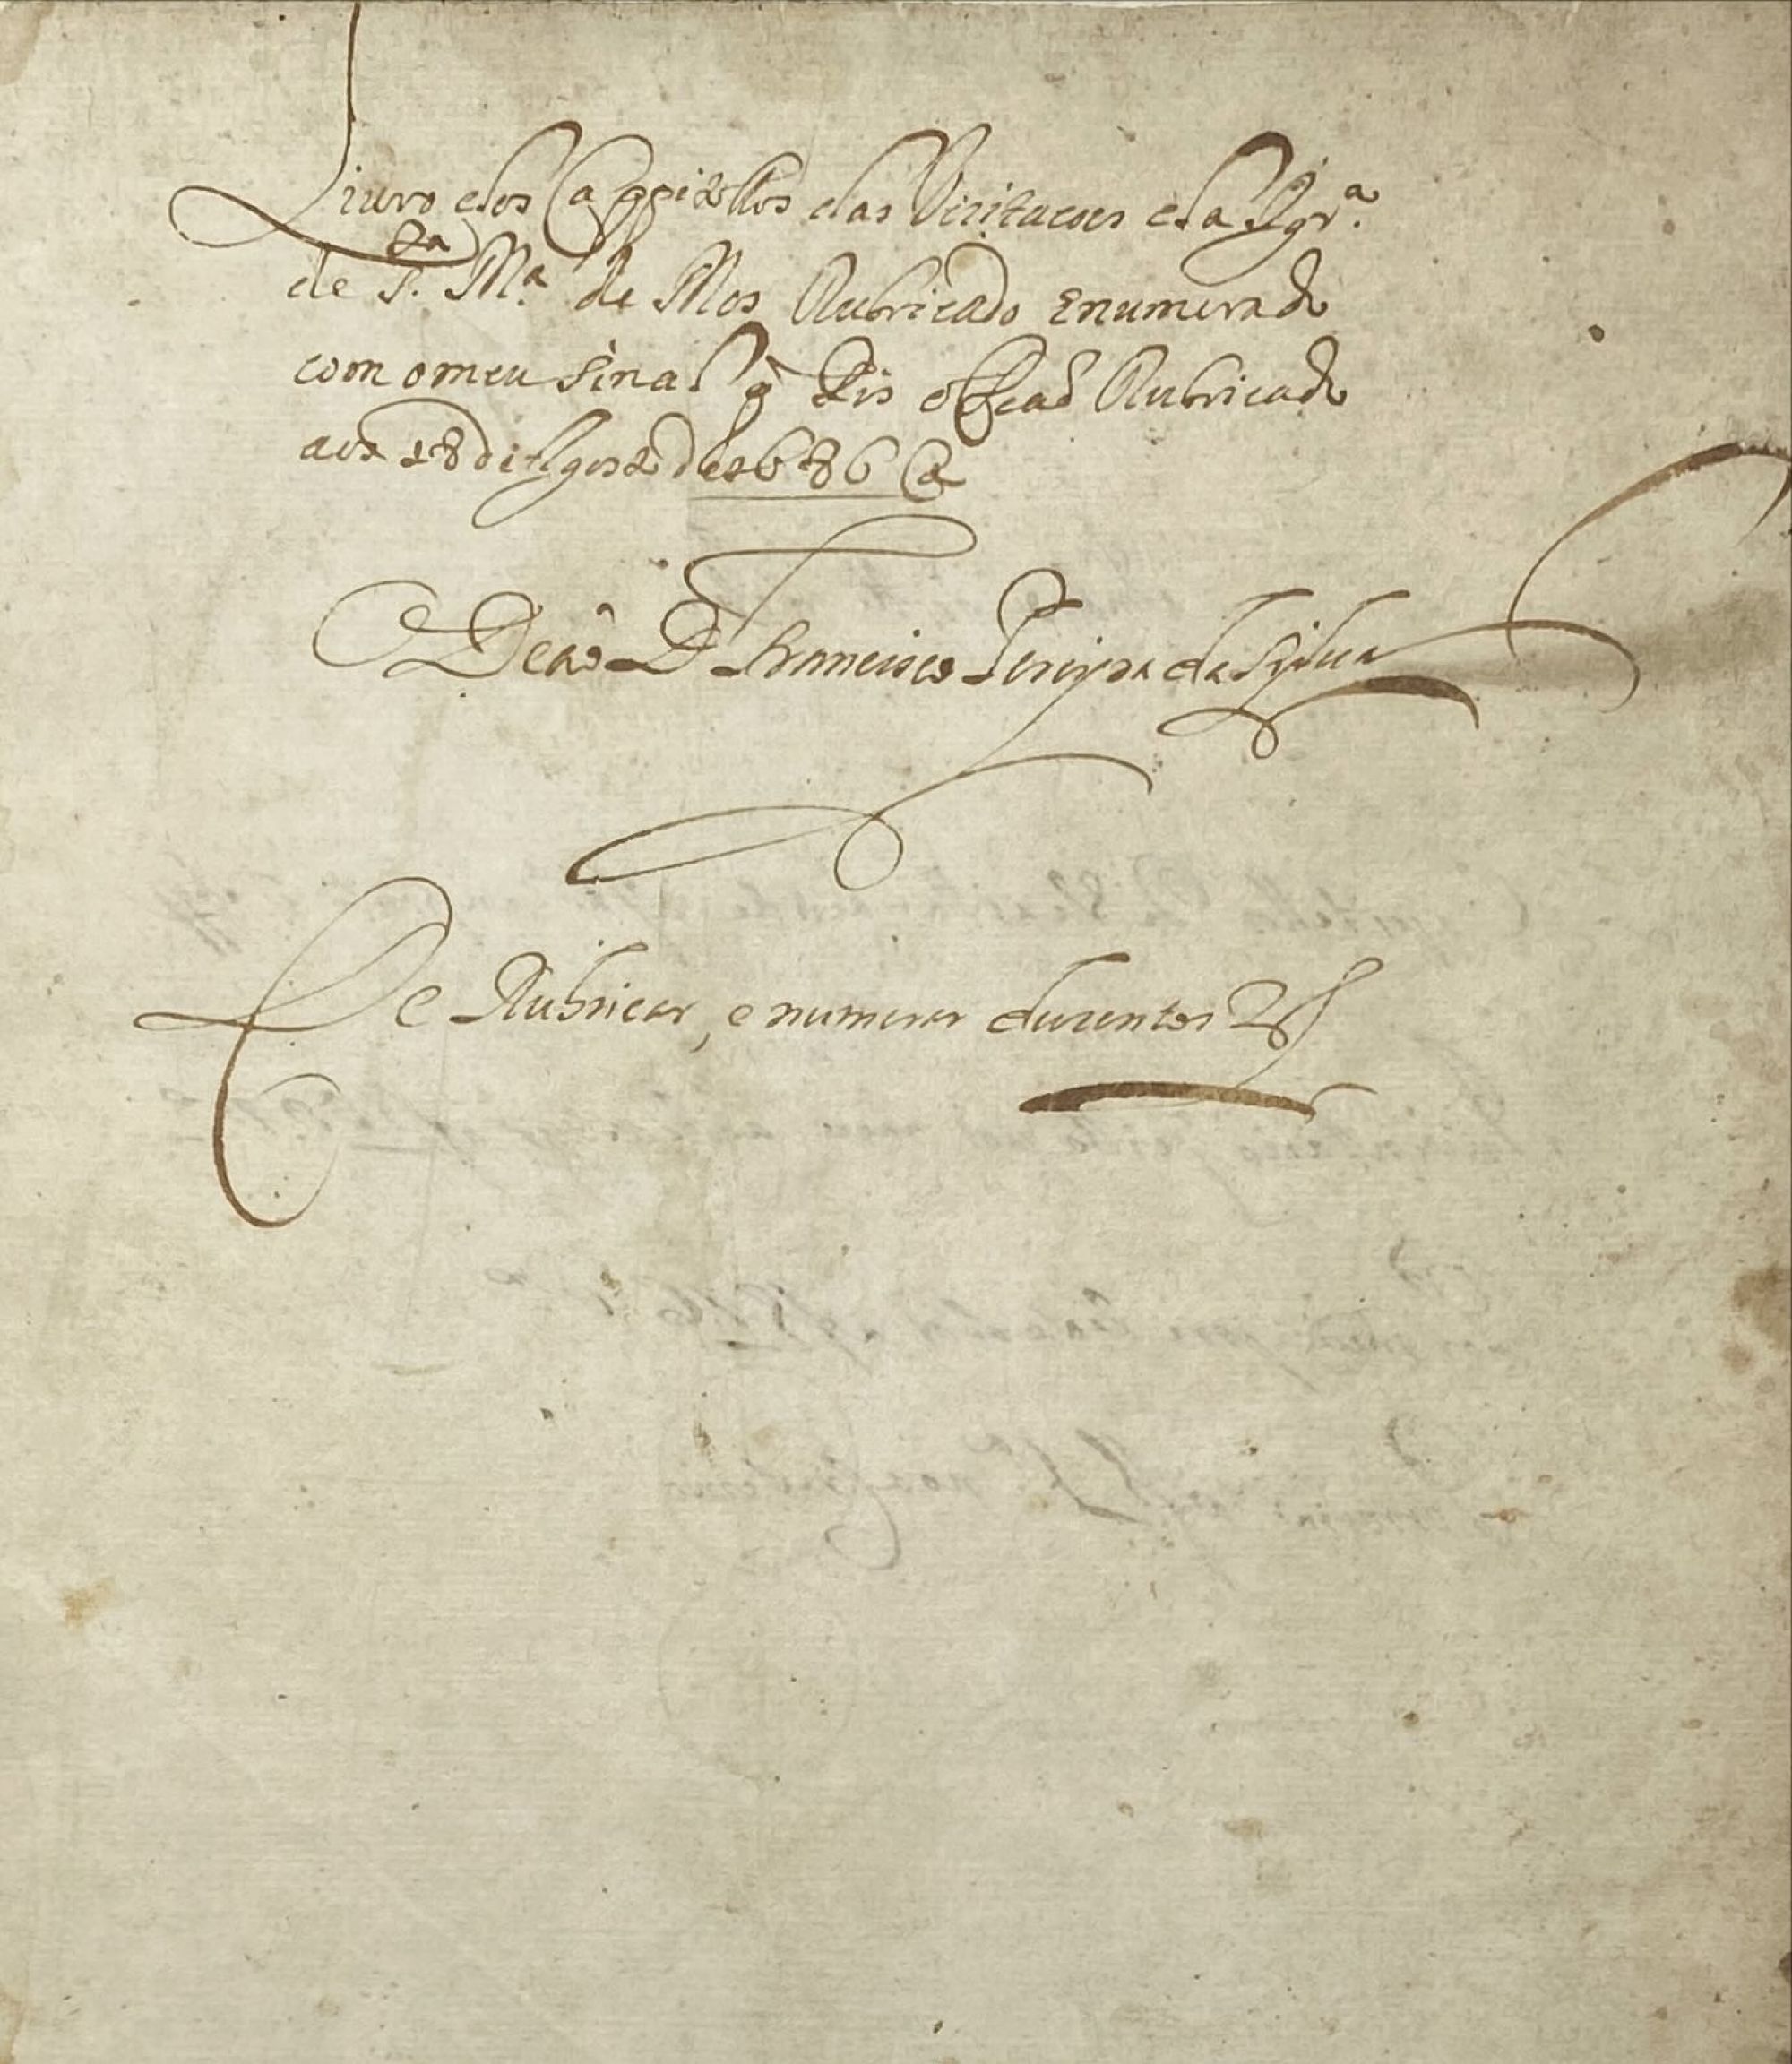 Liuro dos Cappitollos das Vizitacoes da Igrª.
de Sta. Mª de Mos Rubricado Enumerado
com o meu sinal q̃ dis o Deaõ Rubricado
aos 18 di Agosto de 1686 @
O Deaõ D. Francisco Pereyra da Sylva
De Rubricar, e numerar duzentos